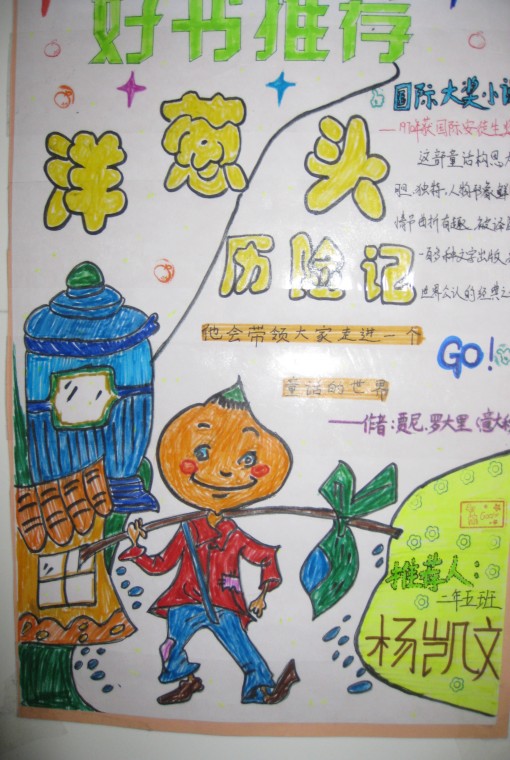 好书推荐
洋葱头
历险记
国际大奖小说
获国际安徒生
这部童话构思
胆.独特,人物形象鲜
情节曲折有趣,被译
世界公认的经典之
他会带领大家走进一个
童话的世界
GO!
——作者:贾尼.罗大里(意大利
Good
推荐人:
二年五班
杨凯文